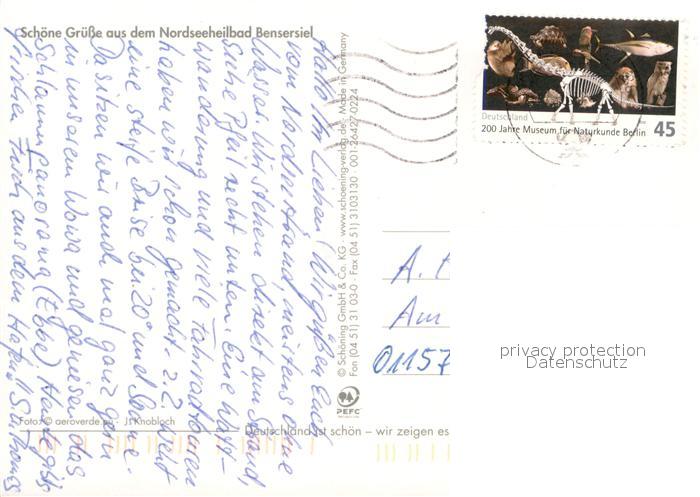 Schöne Grüße aus dem Nordseeheilbad Bensersiel
Hallo Ihr Lieben! Wir grüßen Euch
vom Nordstrand meistens ohne
Wasser. Wir stehen direkt am Strand,
siehe Pfeil recht unten. Eine Watt-
wanderung und viele Fahrradtouren
haben wir schon gemacht. z.Z. weht
eine steife Brise bei 20° und Sonne.
Da sitzen wir auch mal ganz gern
in unserem Wowa und genießen das
Schlammpanorama (Ebbe) Heute gibts
frischen Fisch aus dem Hafen!
© Schöning GmbH & Co. KG · www.schoening-verlag.de · Made in Germany
Fon (04 51) 31 03-0 · Fax (04 51) 3103130 · 001-26427-0224
PEFC
Deutschland
200 Jahre Museum für Naturkunde Berlin 45
A.
Am
01157
privacy protection
Datenschutz
Foto: © aeroverde.eu - J. Knobloch
Deutschland ist schön – wir zeigen es